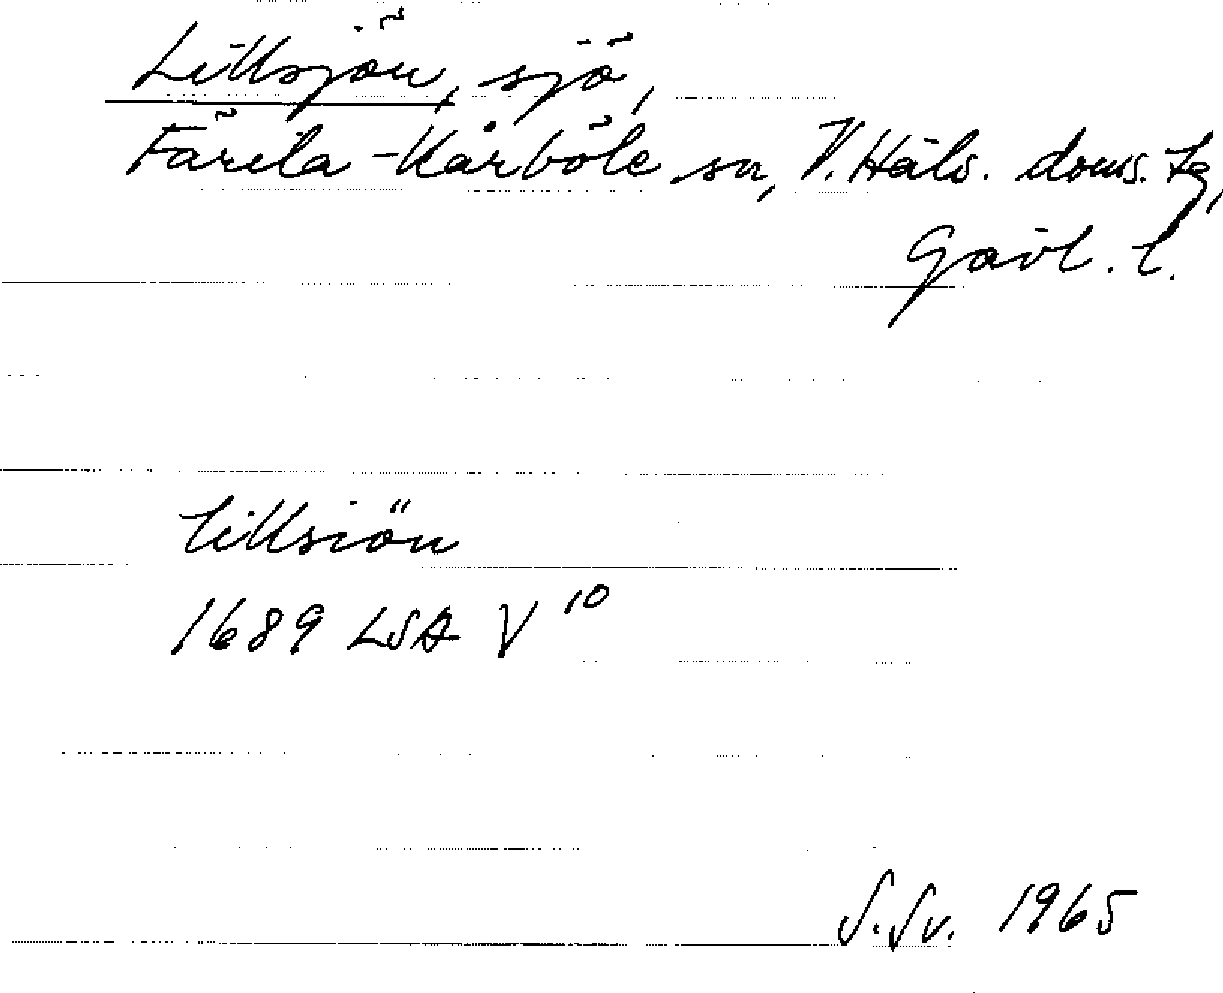 Lillsjön, sjö,
Färila-Kårböle sn, V. Häls. doms. tg,
Gävl. l.
lillsiön
1689 LSA V 10
S. Sv. 1965